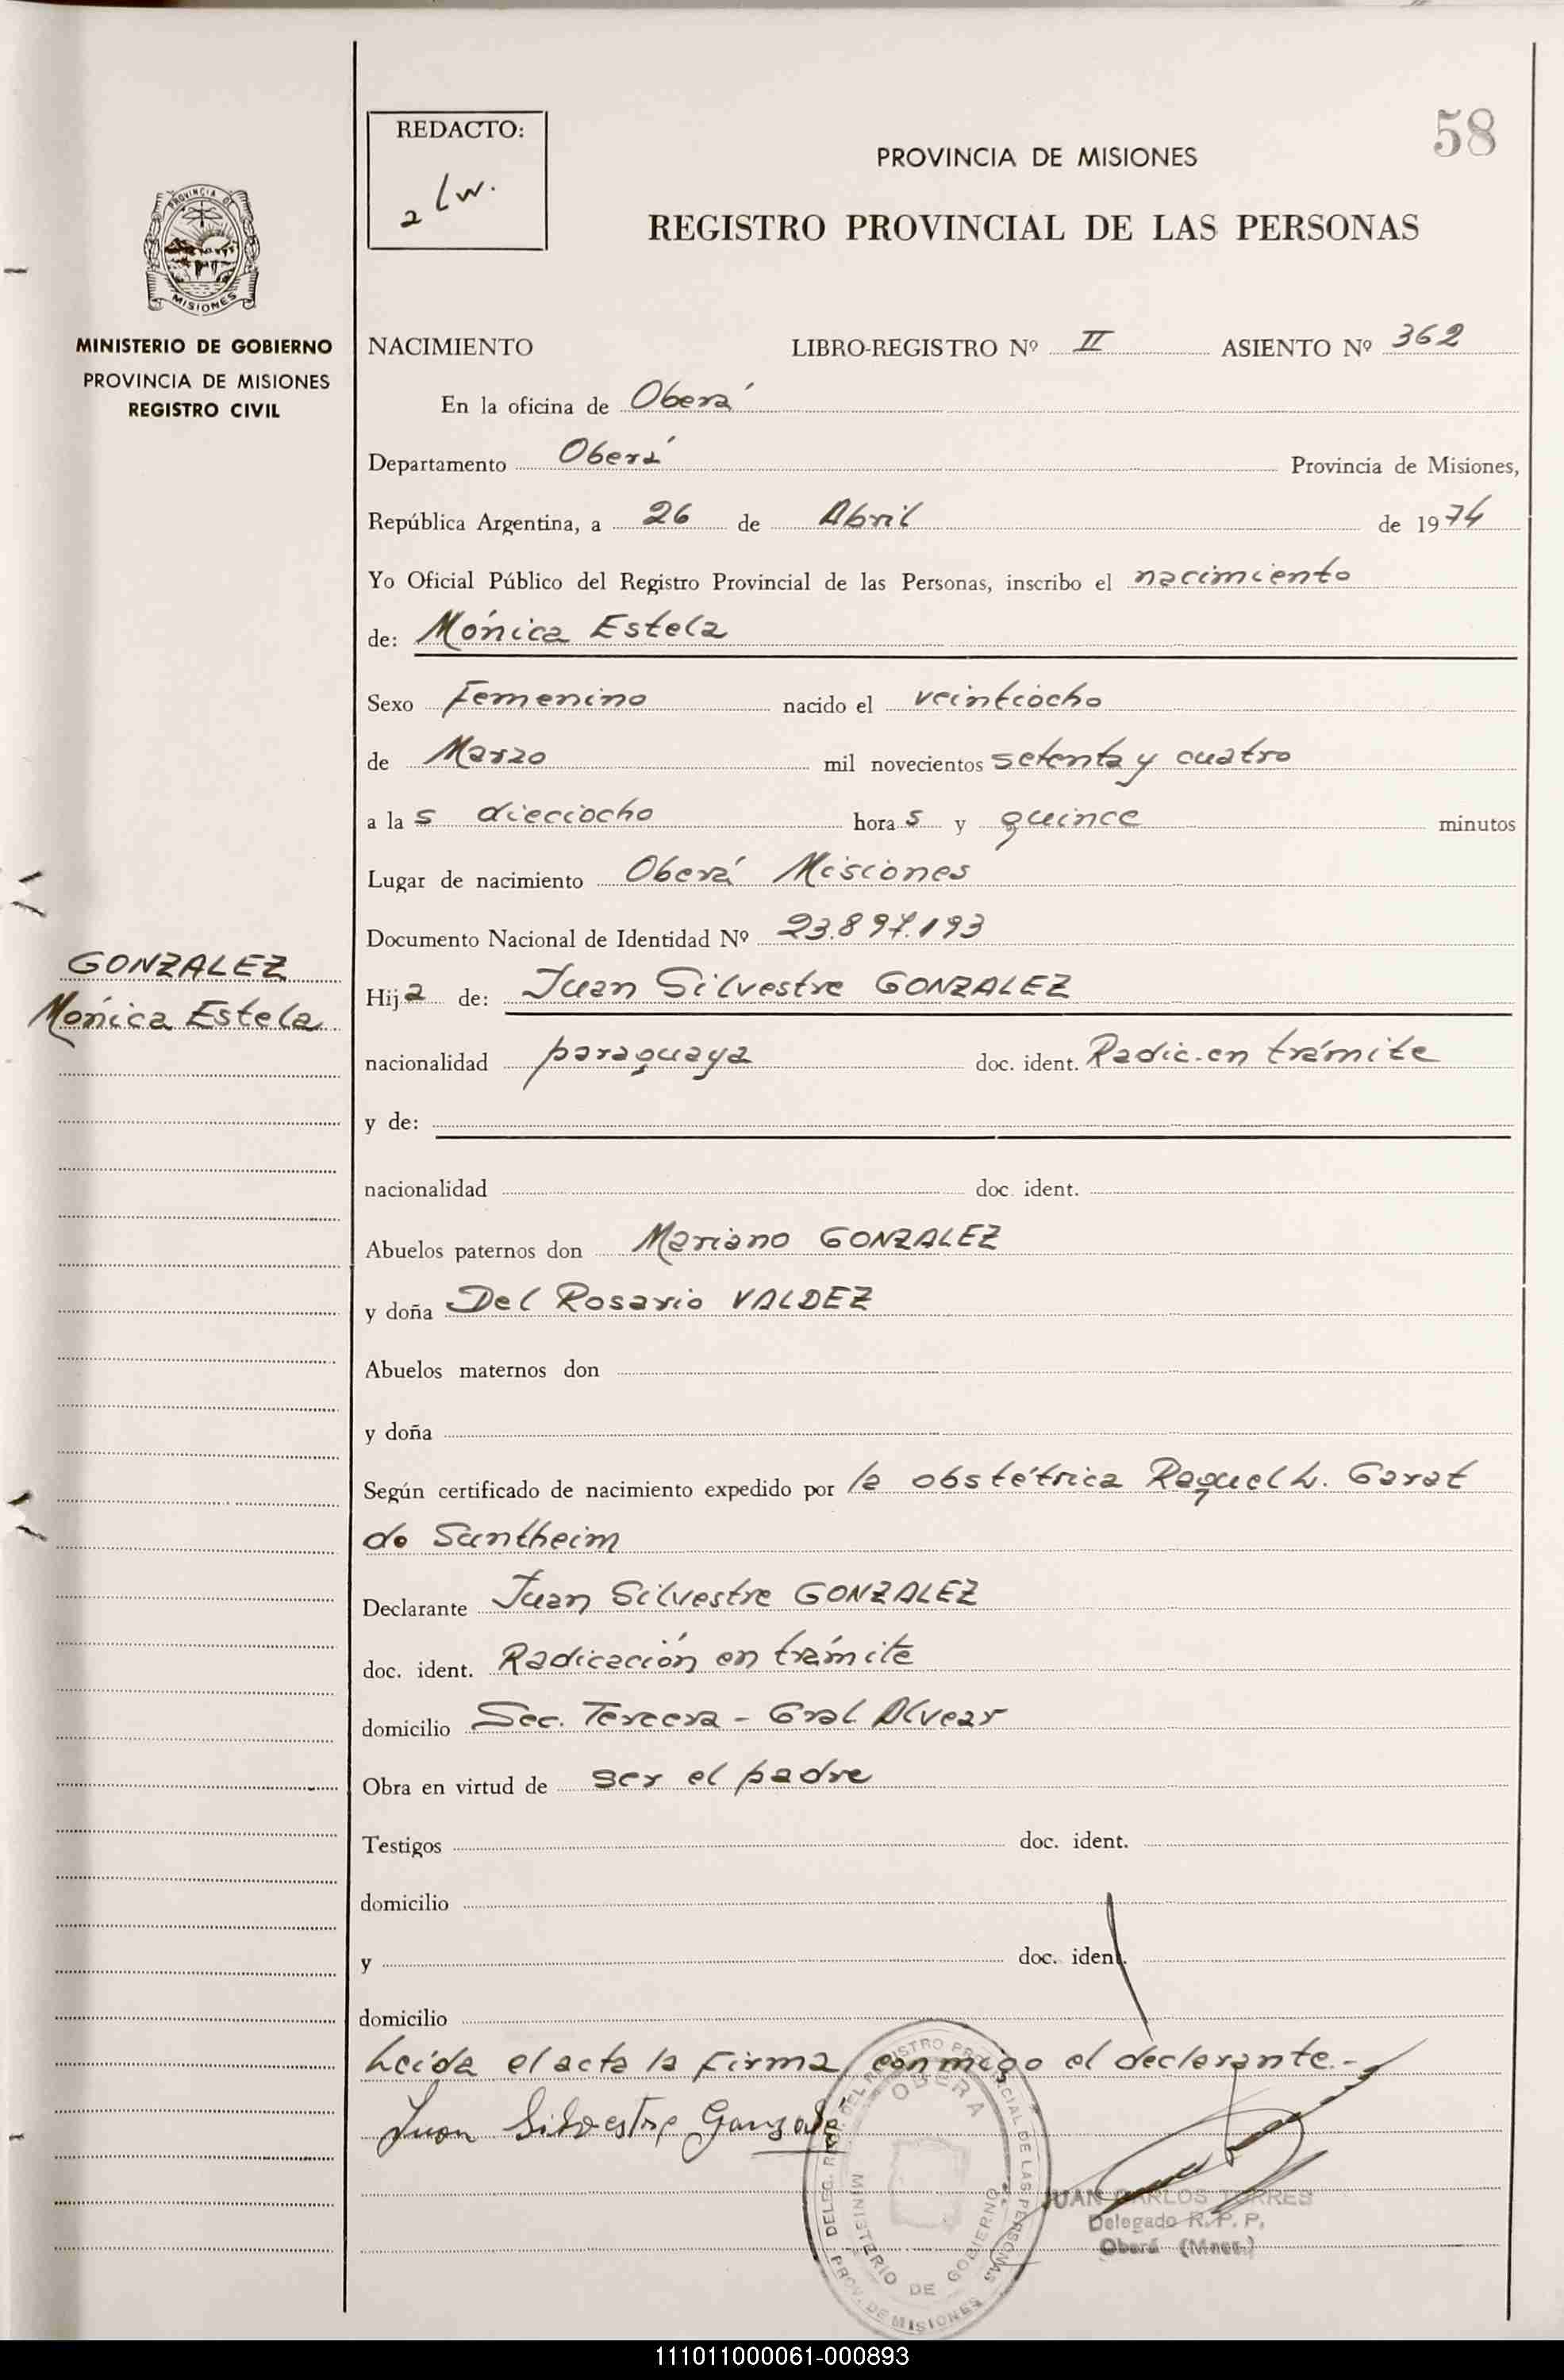 58
REDACTO:
PROVINCIA DE MISIONES
REGISTRO PROVINCIAL DE LAS PERSONAS
PROVINCIA DE
MISIONES
MINISTERIO DE GOBIERNO
PROVINCIA DE MISIONES
REGISTRO CIVIL
NACIMIENTO LIBRO-REGISTRO Nº II ASIENTO Nº 362
En la oficina de Oberá
Departamento Oberá Provincia de Misiones,
República Argentina, a 26 de Abril de 1974
Yo Oficial Público del Registro Provincial de las Personas, inscribo el nacimiento
de: Mónica Estela
Sexo Femenino nacido el veintiocho
de Marzo mil novecientos setenta y cuatro
a las dieciocho horas y quince minutos
Lugar de nacimiento Oberá Misiones
Documento Nacional de Identidad Nº 23.897.193
GONZALEZ
Mónica Estela
Hija de: Juan Silvestre GONZALEZ
nacionalidad paraguaya doc. ident. Radic. en trámite
y de:
nacionalidad doc. ident.
Abuelos paternos don Mariano GONZALEZ
y doña Del Rosario VALDEZ
Abuelos maternos don
y doña
Según certificado de nacimiento expedido por la obstétrica Raquel L. Garat
de Santheim
Declarante Juan Silvestre GONZALEZ
doc. ident. Radicación en trámite
domicilio Sec. Tercera - Gral Alvear
Obra en virtud de ser el padre
Testigos doc. ident.
domicilio
y doc. ident.
domicilio
Leída el acta la firma, conmigo el declarante.-
Juan Silvestre Gonzale
DELEG. REG. DEL REGISTRO PROVINCIAL DE LAS PERSONAS
OBERA
MINISTERIO DE GOBIERNO
PROV. DE MISIONES
JUAN CARLOS TORRES
Delegado R. P. P.
Oberá (Mnes.)
111011000061-000893